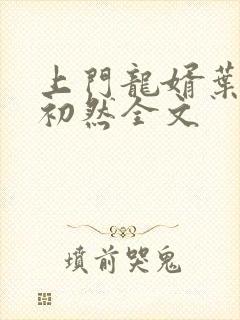 上門龍婿葉
初然全文
墳前哭鬼